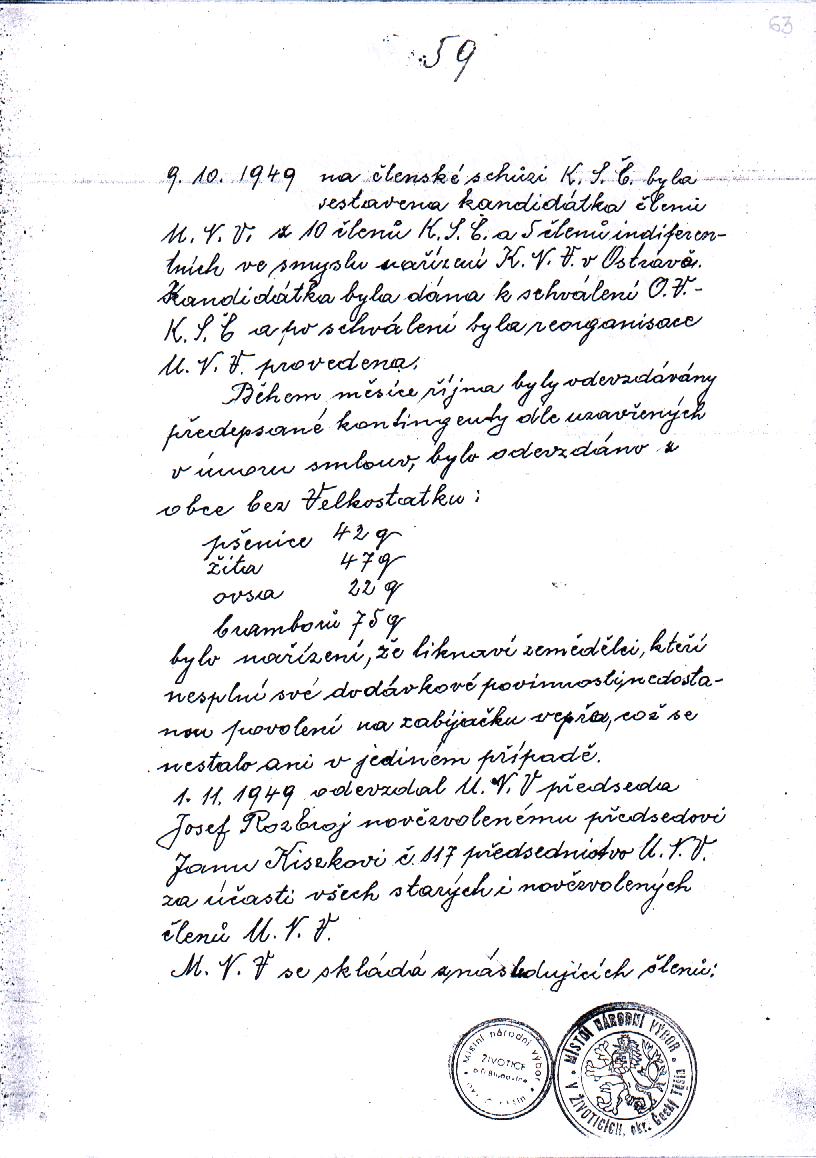 63
59
9. 10. 1949 na členské schůzi K. S. Č. byla
sestavena kandidátka členů
M. N. V. z 10 členů K. S. Č. a 5 členů indiferen-
tních ve smyslu nařízení K. N. V. v Ostravě.
Kandidátka byla dána k schválení O. V.-
K. S. Č a po schválení byla reorganisace
M. N. V. provedena.
Během měsíce října byly odevzdávány
předepsané kontingenty dle uzavřených
v únoru smluv, bylo odevzdáno z
obce bez Velkostatku:
pšenice 42 q
žita 47 q
ovsa 22 q
bramborů 75 q
bylo nařízení, že liknaví zemědělci, kteří
nesplní své dodávkové povinnosti, nedosta-
nou povolení na zabíjačku vepřa, což se
nestalo ani v jediném případě.
1. 11. 1949 odevzdal M. N. V předseda
Josef Rozbroj novězvolenému předsedovi
Janu Kiszkovi č. 117 předsednictvo M. N. V.
za účasti všech starých i novězvolených
členů M. N. V.
M. N. V se skládá z následujících členů:
Místní národní výbor
ŽIVOTICE
MÍSTNÍ NÁRODNÍ VÝBOR
V ŽIVOTICÍCH, okr. Český Těšín